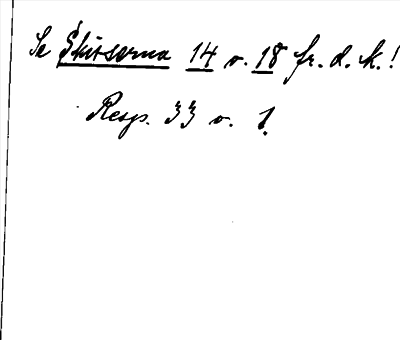 Se Skisserna 14 o. 18 fr. d. k.!
Resp. 33 o. 1.